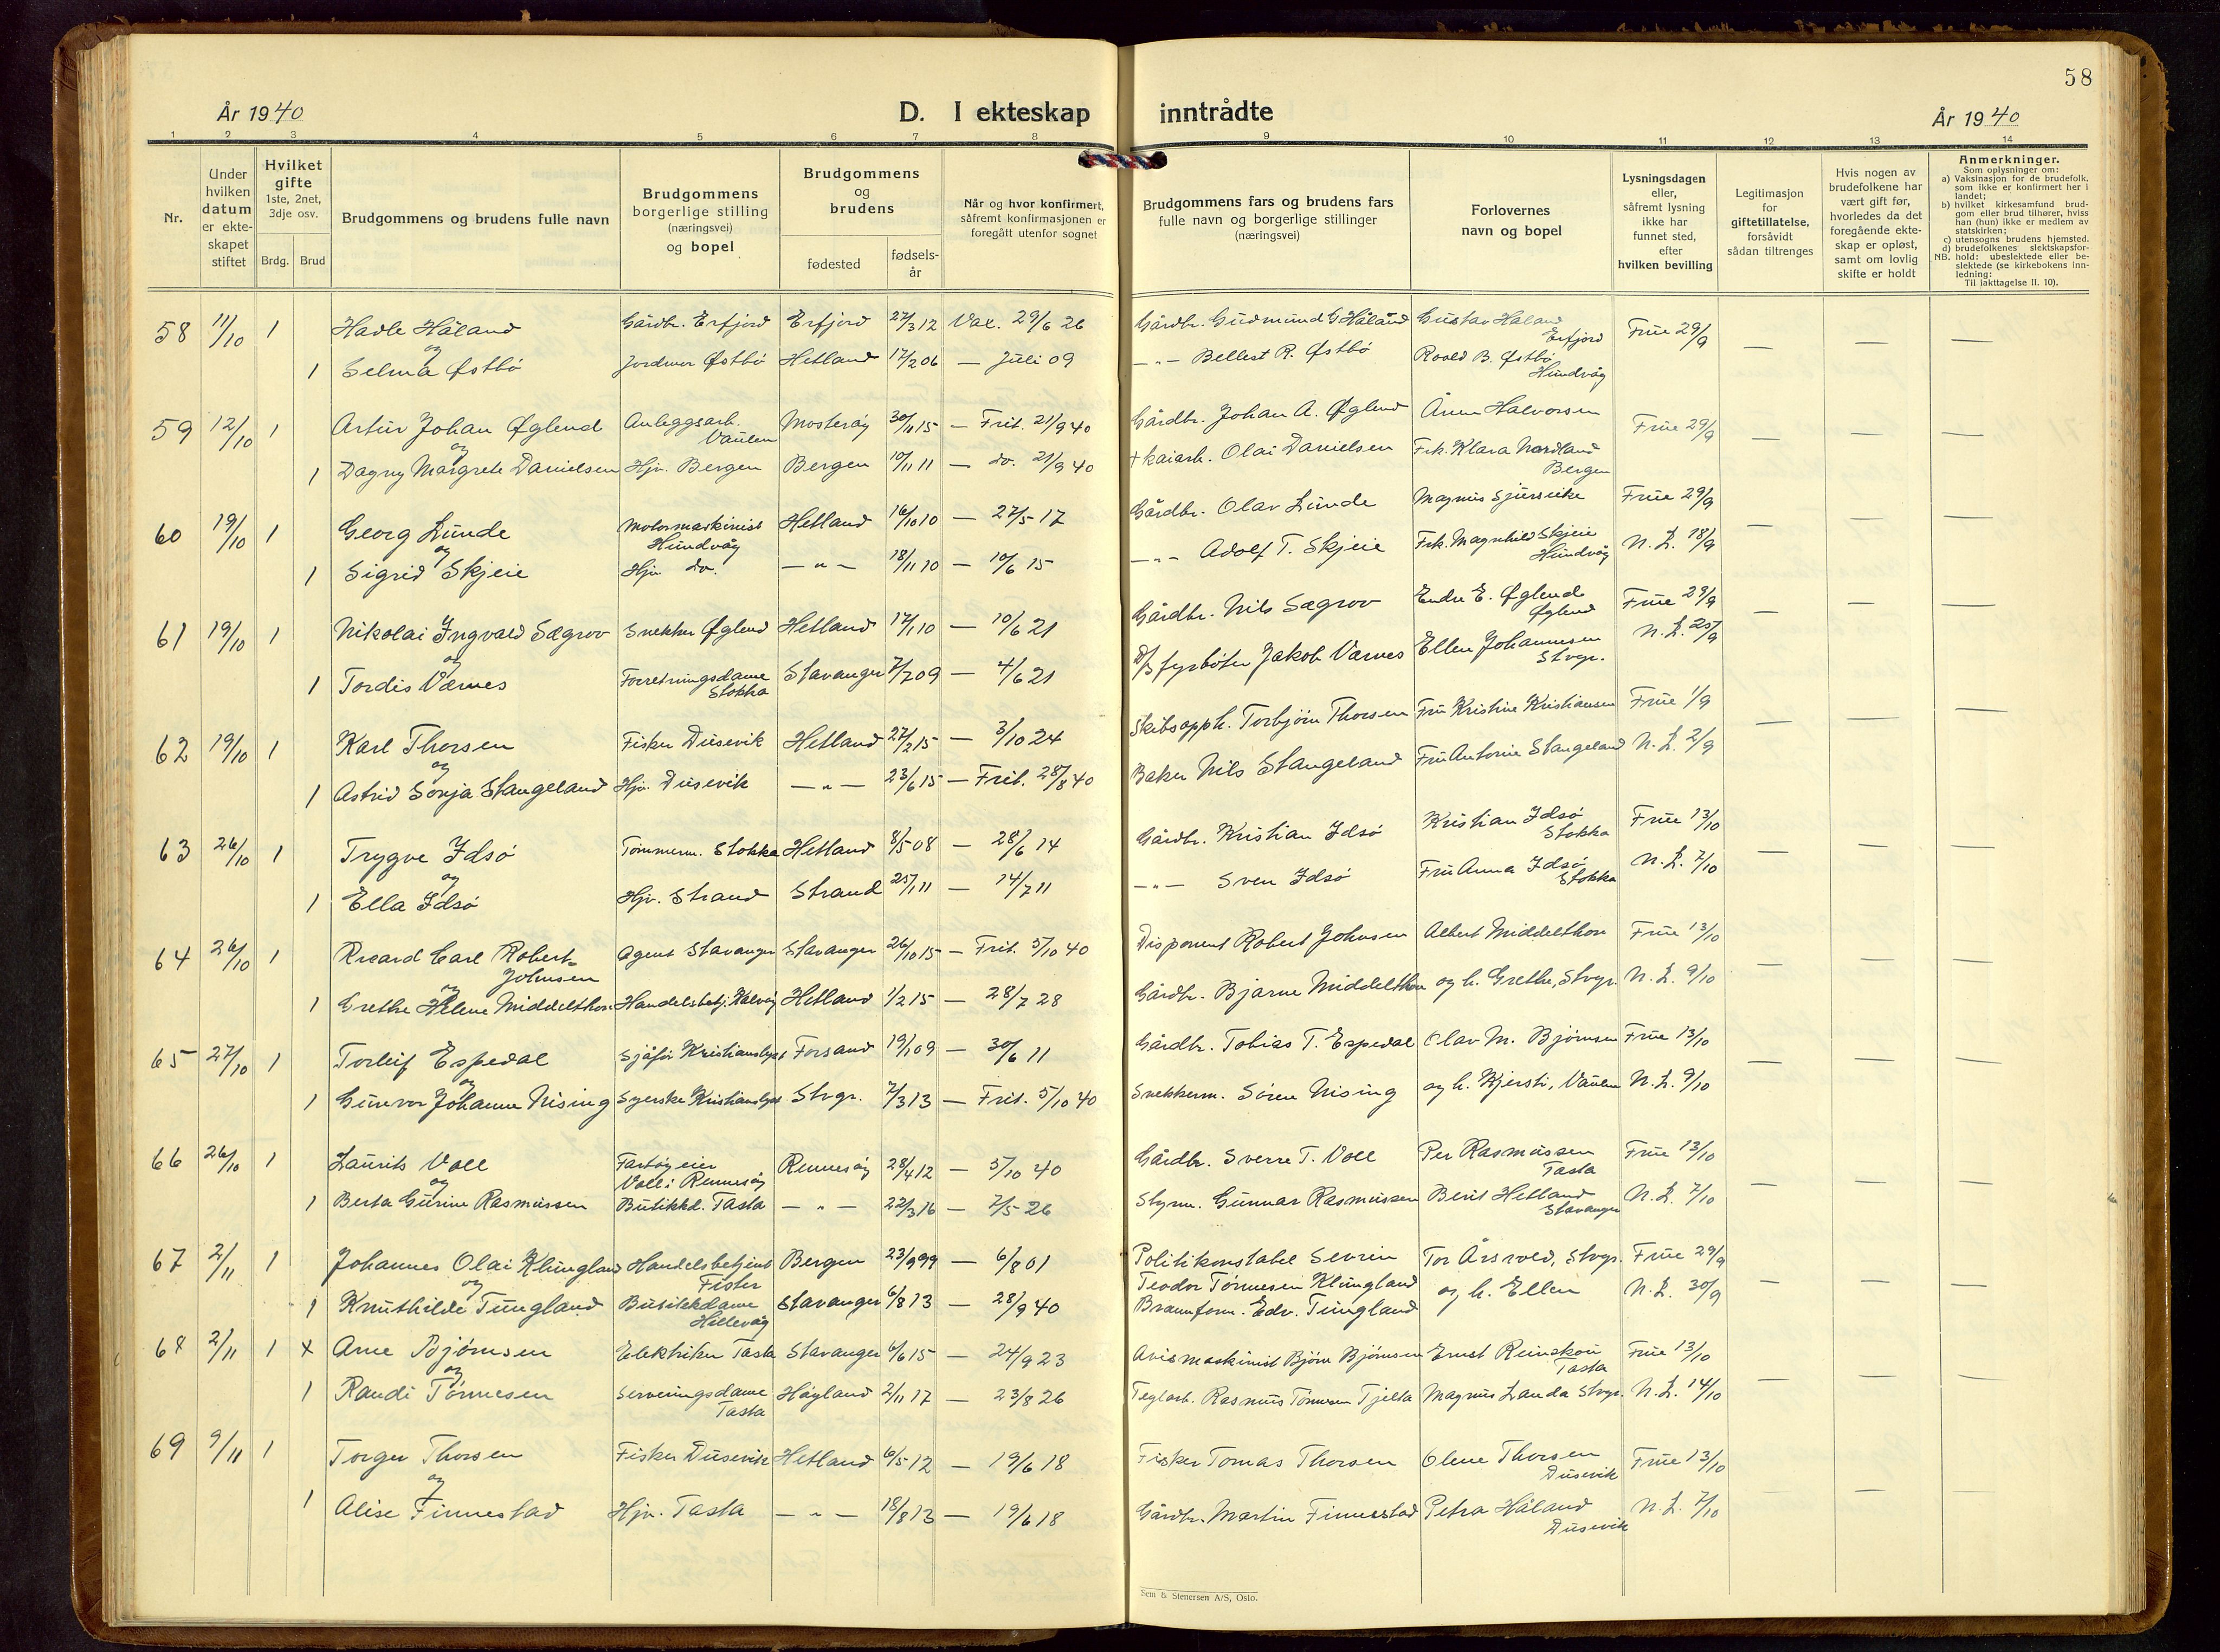 58
År 1940
D. I ekteskap inntrådte
År 1940
1 2 3 4 5 6 7 8 9 10 11 12 13 14
Nr.
Under hvilken datum er ekteskapet stiftet
Hvilket gifte 1ste, 2net, 3dje osv.
Brdg. Brud
Brudgommens og brudens fulle navn
Brudgommens borgerlige stilling (næringsvei) og bopel
Brudgommens og brudens
fødested
fødsels-år
Når og hvor konfirmert, såfremt konfirmasjonen er foregått utenfor sognet
Brudgommens fars og brudens fars fulle navn og borgerlige stillinger (næringsvei)
Forlovernes navn og bopel
Lysningsdagen eller, såfremt lysning ikke har funnet sted, efter hvilken bevilling
Legitimasjon for giftetillatelse, forsåvidt sådan tiltrenges
Hvis nogen av brudefolkene har vært gift før, hvorledes da det foregående ekteskap er opløst, samt om lovlig skifte er holdt
Anmerkninger.
Som oplysninger om:
a) Vaksinasjon for de brudefolk, som ikke er konfirmert her i landet;
b) hvilket kirkesamfund brudgom eller brud tilhører, hviss han (hun) ikke er medlem av statskirken;
c) utensogns brudens hjemsted.
d) brudefolkenes slektskapsforhold: ubeslektede eller beslektede (se kirkebokens innledning:
NB.
Til iakttagelse II. 10).
58 11/10 1 Hadle Håland Gårdbr. Erfjord Erfjord 27/3 12 Vax. 29/6 26 Gårdbr. Gudmund G Håland Gustav Håland Erfjord Frue 29/9 — — —
og
1 Selma Østbö Jordmor Østbö Hetland 17/2 06 — Juli 09 —"— Bellest R. Østbö Roald B. Østbö Hundvåg
59 12/10 1 Artur Johan Øglend Anleggsarb. Vaulen Mosterøy 30/11 15 — Frit. 21/9 40 Gårdbr. Johan A. Øglend Halvorsen Frue 29/9 — — —
og
1 Dagny Margrete Danielsen Hjv. Bergen Bergen 10/11 11 — do. 21/9 40 + kaiarb. Olai Danielsen Frk. Klara Nordland Bergen
60 19/10 1 Georg Lunde Motormaskinist Hundvåg Hetland 16/10 10 — 27/5 17 Gårdbr. Olav Lunde Magnus Frue 29/9 — — —
og
1 Sigrid Skjeie Hjv. do. —"— 18/11 10 — 10/6 15 —"— Adolf T. Skjeie Frk. Magnhild Skjeie Hundvåg N. L. 18/9
61 19/10 1 Nikolai Ingvald Sægrov Snekker Øglend Hetland 17/1 10 — 10/6 21 Gårdbr. Nils Sægrov Endre E. Øglend Øglend Frue 29/9 — — —
og
1 Tordis Værnes Forretningsdame Stokka Stavanger 7/7 09 — 4/6 21 D/S fyrbøter Jakob Værnes Ellen Johannesen Stvgr. N. L. 25/9
62 19/10 1 Karl Thorsen Fisker Dusevik Hetland 27/2 15 — 3/10 24 Skibsopph. Torbjörn Thorsen Fru Kristine Kristiansen Frue 1/9 — — —
og
1 Astrid Sonja Stangeland Hjv. Dusevik —"— 23/6 15 — Frit. 28/8 40 Baker Nils Stangeland Fru Antonie Stangeland N. L. 2/9
63 26/10 1 Trygve Idsö Tömmerm. Stokka Hetland 8/5 08 — 28/6 14 Gårdbr. Kristian Idsö Kristian Idsö Stokka Frue 13/10 — — —
og
1 Ella Idsö Hjv. Strand Strand 25/1 11 — 14/7 11 —"— Sven Idsö Fru Anna Idsö Stokka N. L. 7/10
64 26/10 1 Ricard Carl Robert Johnsen Agent Stavanger Stavanger 26/10 15 — Frit. 5/10 40 Disponent Robert Johnsen Albert Middelthon Frue 13/10 — — —
og
1 Grethe Helene Middelthon Handelsbetj. Kalvöy Hetland 1/2 15 — 28/7 28 Gårdbr. Bjarne Middelthon og h. Grethe, Stvgr. N. L. 9/10
65 27/10 1 Torleif Espedal Sjåför Kristianslyst Forsand 19/1 09 — 30/6 11 Gårdbr. Tobias T. Espedal Olav M. Björnsen Frue 13/10 — — —
og
1 Gunvor Johanne Nising Syerske Kristianslyst Stvgr. 7/3 13 — Frit. 5/10 40 Snekkerm. Sören Nising og h. Kjersti, Vaulen N. L. 9/10
66 26/10 1 Laurits Voll Fartøyeier Voll i Rennesøy Rennesøy 28/4 12 — 5/10 40 Gårdbr. Sverre T. Voll Per Rasmussen Tasta Frue 13/10 — — —
og
1 Berta Gurine Rasmussen Butikkd. Tasta —"— 22/3 16 — 7/5 26 Styrm. Gunnar Rasmussen Berit Hetland Stavanger N. L. 7/10
67 2/11 1 Johannes Olai Klungland Handelsbetjent Fister Bergen 23/9 99 — 6/8 01 Politikonstabel Sevrin Teodor Tönnesen Klungland Tor Årsvold, Stvgr. Frue 29/9 — — —
og
1 Knuthilde Tungland Butikkdame Hillevåg Stavanger 6/8 13 — 28/9 40 Brannform. Edv. Tungland og h. Ellen N. L. 30/9
68 2/11 1 x Arne Björnsen Elektriker Tasta Stavanger 6/6 15 — 24/9 23 Avismaskinist Björn Björnsen Ernst Reinskou Tasta Frue 13/10 — — —
og
1 Randi Tönnesen Serveringsdame Tasta Høyland 2/11 17 — 23/8 26 Teglarb. Rasmus Tönnesen Tjelta Magnus Landa Stvgr. N. L. 14/10
69 9/11 1 Torger Thorsen Fisker Dusevik Hetland 6/5 12 — 19/6 18 Fisker Tomas Thorsen Olene Thorsen Dusevik Frue 13/10 — — —
og
1 Alise Finnestad Hjv. Tasta —"— 18/8 13 — 19/6 18 Gårdbr. Martin Finnestad Petra Håland Dusevik N. L. 7/10
Sem & Stenersen A/S, Oslo.